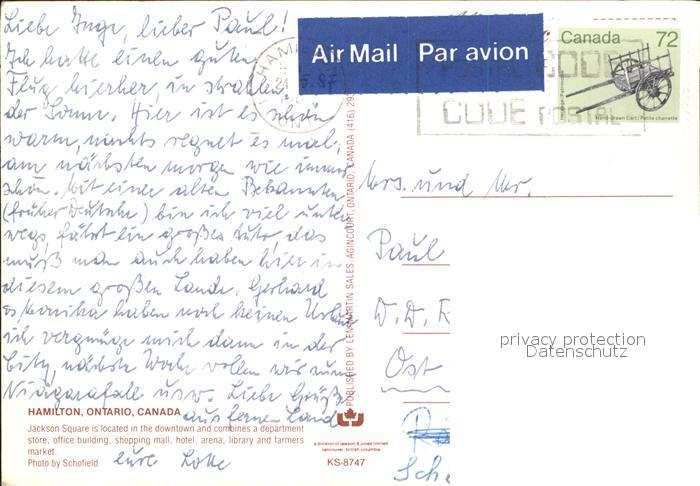 Liebe Inge, lieber Paul!
Ich hatte einen guten
Flug hierher, in strahlen
der Sonne. Hier ist es schön
warm, nachts regnet es mal.
am nächsten morgen wie immer
schön. Mit einer alten Bekannten
(früher Deutsche) bin ich viel unter
wegs, fährt ein großes Auto, das
muß man auch haben hier in
diesem großen Land. Gerhard
Monika haben noch keinen Urlaub
ich vergnüge mich dann in der
City, nächste Woche wollen wir zum
Niagarafälle usw. Liebe Grüße
aus fernen Land
eure Lotte
HAMILTON, ONTARIO, CANADA
Jackson Square is located in the downtown and combines a department
store, office building, shopping mall, hotel, arena, library and farmers
market.
Photo by Schofield
PUBLISHED BY LEN MARTIN SALES AGINCOURT, ONTARIO, CANADA (416) 293
a division of lawson & jones limited
vancouver, british columbia
KS-8747
Air Mail Par avion
HAMIL
5.87
CODE
CODE POSTAL
Canada 72
Hand-drawn Cart/Petite charrette
Mrs. und Mr.
Paul
W. D.
Ost
Sch
privacy protection
Datenschutz